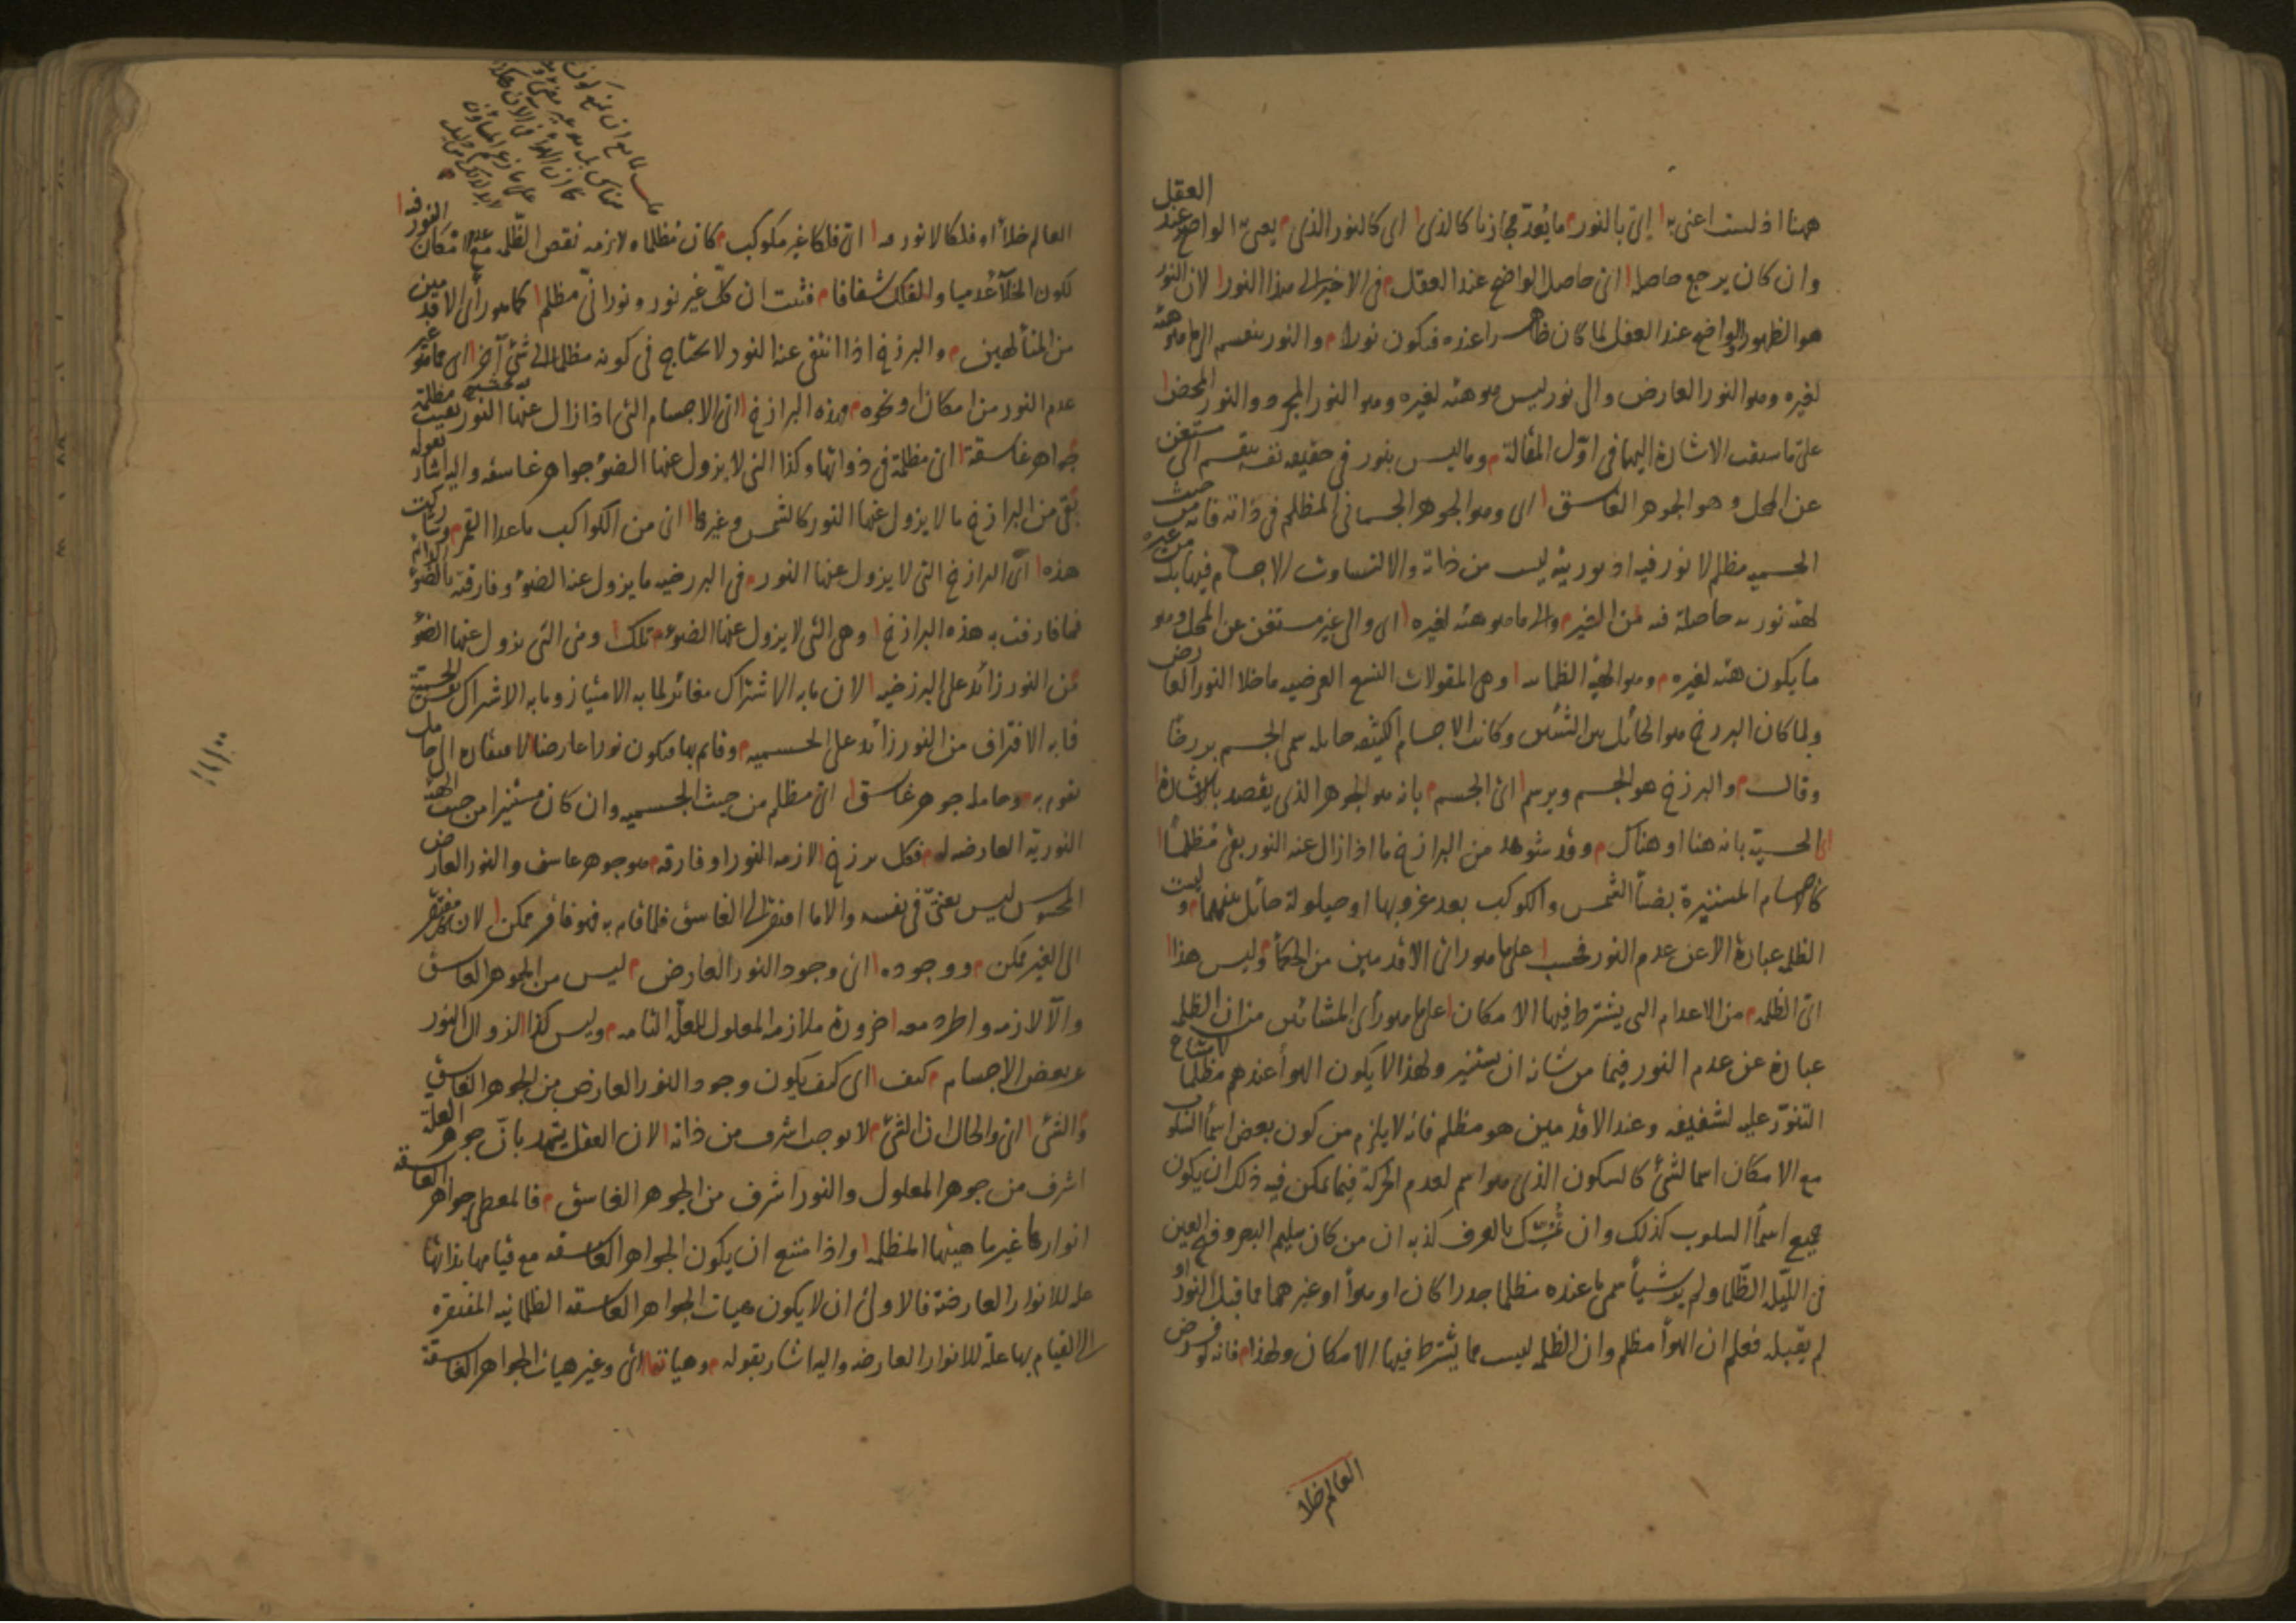 ههنا اذ لست اعنى به اى بالنور ما يُعدّ مجازيا كالذى اى كالنور الذى يعنى به الواضح عند العقل
وان كان يرجع حاصله اى حاصل الواضح عند العقل فى الاخير الى هذا النور لان النور
هو الظهور والواضح عند العقل لما كان ظاهرا عنده فيكون نورا والنور ينقسم الى ما هو هيئة
لغيره وهو النور العارض والى نور ليس هو هيئة لغيره وهو النور المجرد والنور المحض
على ما سبقت الاشارة اليها فى اوّل المقالة وما ليس بنور فى حقيقة نفسه ينقسم الى مستغن
عن المحل وهو الجوهر الغاسق اى وهو الجوهر الجسمانى المظلم فى ذاته فانه من حيث
الجسمية مظلم لا نور فيه اذ نوريته ليست من ذاته والا لتساوت الاجسام فيها بل من غيره
لهيئة نورية حاصلة فيه من الغير والى ما هو هيئة لغيره اى والى غير مستغن عن المحل وهو
ما يكون هيئة لغيره وهو الهيئة الظلمانية وهى المقولات التسع العرضية ما خلا النور العارض
ولما كان البرزخ هو الحائل بين الشيئين وكانت الاجسام الكثيفة حائلة سمى الجسم برزخا
وقال والبرزخ هو الجسم ويرسم اى الجسم بانه هو الجوهر الذى يقصد بالاشارة
اى الحسية بانه هنا او هناك وقد شوهد من البرازخ ما اذا زال عنه النور بقى مظلمًا
كالاجسام المستنيرة بضياء الشمس والكواكب بعد غروبها او حيلولة حائل بينهما وليست
الظلمة عبارة الا عن عدم النور فحسب على ما هو راى الاقدمين من الحكماء وليس هذا
اى الظلمة من الاعدام التى يشترط فيها الامكان على ما هو رأى المشائين من ان الظلمة
عبارة عن عدم النور فيما من شانه ان يستنير ولهذا لا يكون الهواء عندهم مظلما لامتناع
التنوّر عليه لشفيفه وعند الاقدمين هو مظلم فانه لا يلزم من كون بعض اسماء السلوب
مع الامكان اسما لشئ كالسكون الذى هو اسم لعدم الحركة فيما يمكن فيه ذلك ان يكون
جميع اسماء السلوب كذلك وان تمسّك بالعرف كذبه ان من كان سليم البصر وفتح العين
فى الليلة الظلماء ولم ير شيأ سمى ما عنده مظلما جدارا كان او هواء او غيرهما مما قبل النور او
لم يقبله فعلم ان الهواء مظلم وان الظلمة ليست مما يشترط فيها الامكان ولهذا فانه لو فرض
العالم خلاء
العالم خلاء او فلكا لا نور فيه اى فلكا غير مكوكب كان مظلما ولازمه نقص الظلمة مع عدم امكان النور فيه
لكون الخلاء عدميا والفلك شفافا فثبت ان كلّ غير نور ونورانىّ مظلم كما هو رأى الاقدمين
من المتألهين والبرزخ اذا انتفى عنه النور لا يحتاج فى كونه مظلما الى شئ آخر اى مما هو غير
عدم النور من امكان ونحوه وهذه البرازخ اى الاجسام التى اذا زال عنها النور بقيت مظلمة
جواهر غاسقة اى مظلمة فى ذواتها وكذا التى لا يزول عنها الضوء جواهر غاسقة واليه اشار بقوله
بقى من البرازخ ما لا يزول عنها النور كالشمس وغيرها اى من الكواكب ما عدا القمر وشاركت
هذه اى البرازخ التى لا يزول عنها النور فى البرزخية ما يزول عنه الضوء وفارقته بالضوء الدائم
فما فارقت به هذه البرازخ وهى التى لا يزول عنها الضوء تلك وهى التى يزول عنها الضوء
من النور زائد على البرزخية لان ما به الاشتراك مغائر لما به الامتياز وما به الاشتراك نفس الجسمية
فما به الافتراق من النور زائد على الجسمية وقائم بها فيكون نورا عارضا لافتقاره الى حامل
يقوم به وحامله جوهر غاسق اى مظلم من حيث الجسمية وان كان مستنيرا من حيث الهيئة
النورية العارضة له فكل برزخ لازمه النور او فارقه هو جوهر غاسق والنور العارض
المحسوس ليس بغنىّ فى نفسه والا ما افتقر الى الغاسق فلما قام به فهو فاقر ممكن لان كل مفتقر
الى الغير ممكن ووجوده اى وجود النور العارض ليس من الجوهر الغاسق
والّا لازمه واطرد معه ضرورة ملازمة المعلول للعلّة التامة وليس كذا لزوال النور
عن بعض الاجسام كيف اى كيف يكون وجود النور العارض من الجوهر الغاسق
والشئ اى والحال ان الشئ لا يوجب اشرف من ذاته لان العقل يشهد بانّ جوهر العلة
اشرف من جوهر المعلول والنور اشرف من الجوهر الغاسق فالمعطى جواهر الغاسقة
انوارها غير ماهيتها المظلمة واذا امتنع ان يكون الجواهر الغاسقة مع قيامها بذاتها
علة للانوار العارضة فالاولى ان لا يكون هيات الجواهر الغاسقة الظلمانية المفتقرة
الى القيام بها علة للانوار العارضة واليه اشار بقوله وهياتها اى وغير هيات الجواهر الغاسقة